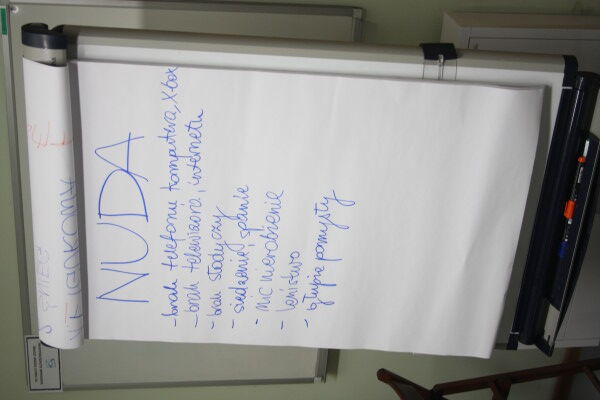 NUDA
- brak telefonu komputera, X-box
- brak telewizora, internetu
- brak słodyczy
- siedzenie, spanie
- nic nierobienie
- lenistwo
- głupie pomysły